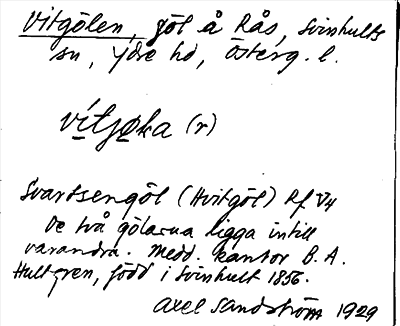 Vitgölen, göl å Rås, Svinhults
sn, Ydre hd, Österg. l.
vítjøka (r)
Svartsengöl (Hvitgöl) Rf V4
De två gölarna ligga intill
varandra. Medd. kantor B. A.
Hultgren, född i Svinhult 1856.
Axel Sandström 1929